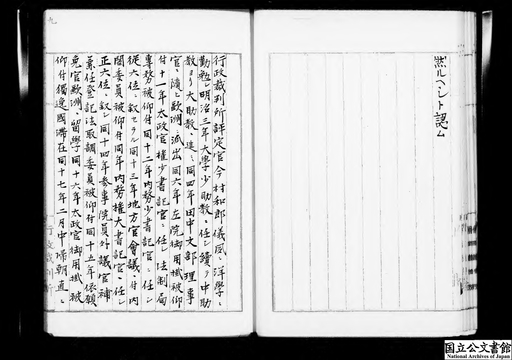 然ルヘシト認ム
行政裁判所評定官今村和郎儀夙ニ洋學ニ
勤勉シ明治三年大學少助教ニ任シ續テ中助
教ヨリ大助教ニ進ミ同四年田中文部理事
官ニ随ヒ歐洲ニ派出同六年左院御用掛被仰
付十一年太政官權少書記官ニ任シ法制局
專務被仰付同十二年内務少書記官ニ任シ
從六位ニ叙セラレ同十三年地方官會議
閣委員被仰付同年内務權大書記官ニ任シ
正六位ニ叙シ同十四年參事院員外議官補
兼任登記法取調委員被仰付同十五年依願
免官歐洲ニ留學同十六年太政官御用掛被
仰付獨逸國滞在同十七年二月中歸朝直ニ
行政裁判所
九
国立公文書館
National Archives of Japan